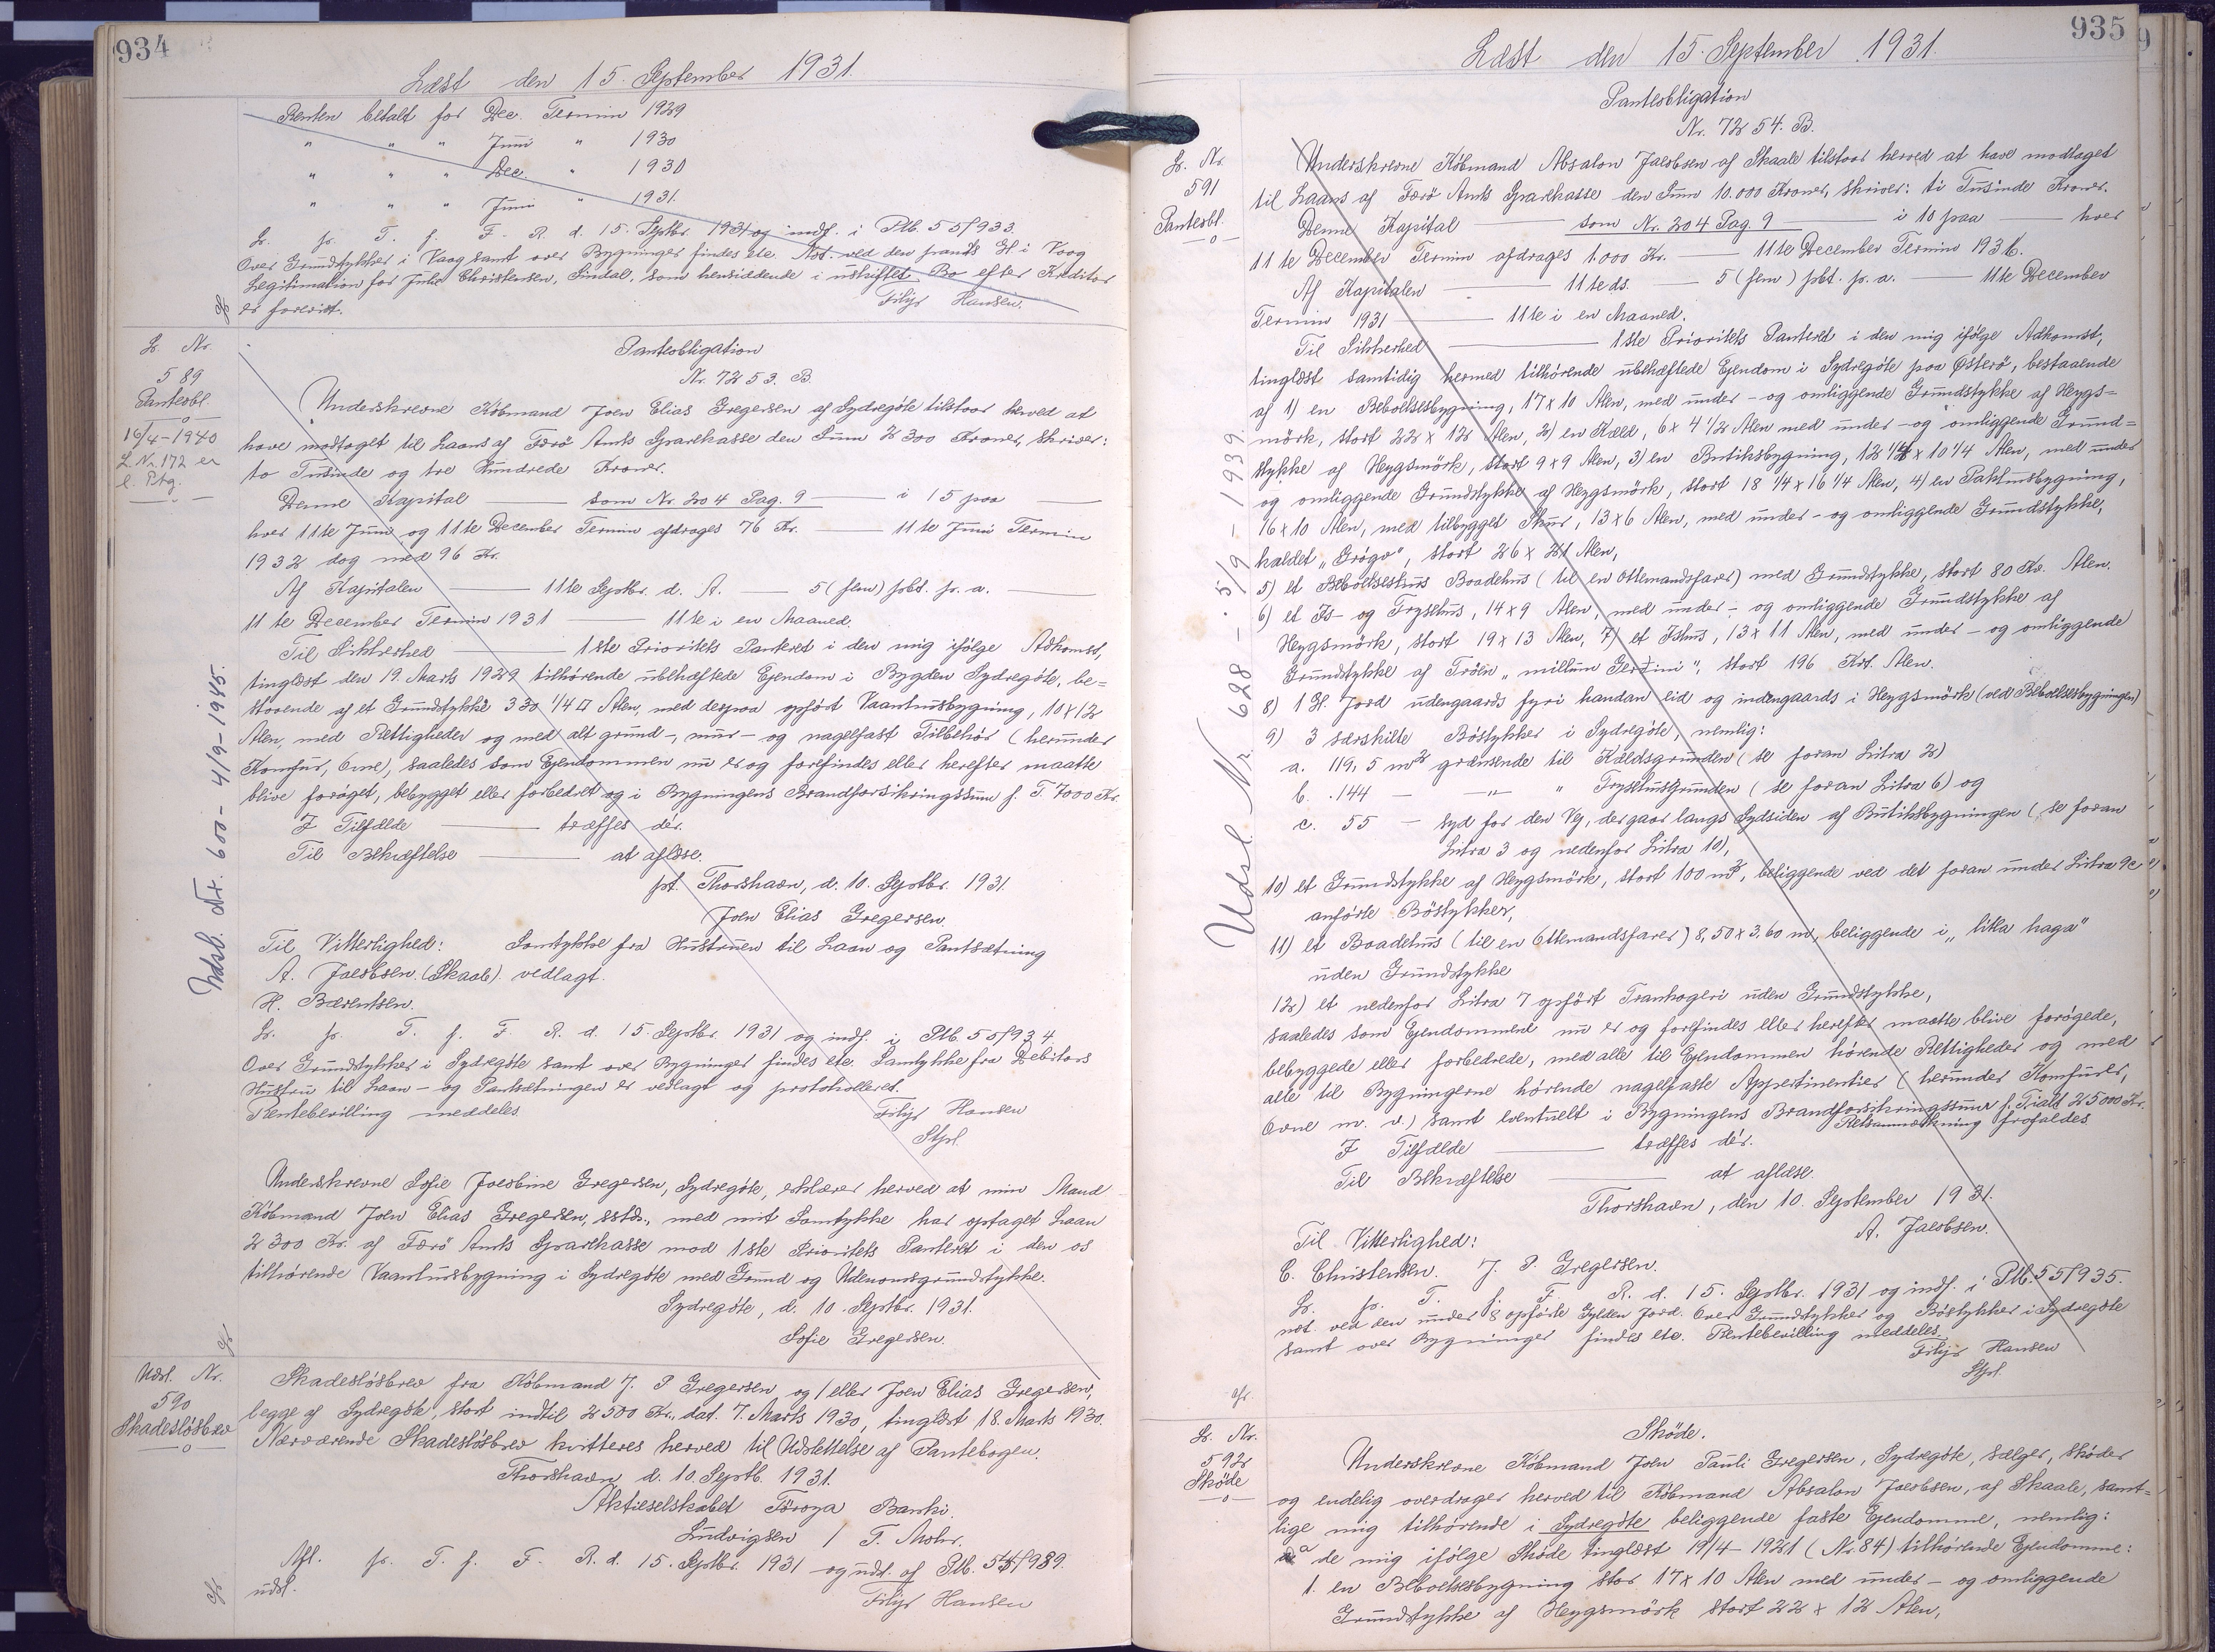 934
Læst den 15. September 1931.
Renten betalt for Dec. Termin 1929
" " " Juni " 1930
" " " Dec. " 1930
" " " Juni " 1931.
L. p. T. f. F. R. d. 15. Septbr. 1931 og indf. i Ptb. 55/933.
Over Grundstykker i Vaag samt over Bygninger findes ete. Not. ved den pants. Gl i Vaag
Legitimation for Julie Christensen, Sindal, som hensiddende i uskiftet Bo efter Kreditor
er forevist. Filip Hansen.
L. Nr.
589
Panteobl.
16/4-1940
L. Nr. 172 er
e. Ptg.
Udsl. Nr. 600 - 4/9-1945.
Panteobligation
Nr. 7253. B.
Underskrevne Købmand Joen Elias Gregersen af Sydregöte tilstaar herved at
have modtaget til Laans af Færö Amts Sparekasse den Sum 2300 Kroner, skriver:
to Tusinde og tre Hundrede Kroner.
Denne Kapital — som Nr. 204 Pag. 9 — i 15 paa —
hver 11te Juni og 11te December Termin afdrages 76 Kr. — 11te Juni Termin
1932 dog med 96 Kr.
Af Kapitalen — 11te Septbr. d. A. — 5 (fem) pct. p. a. —
11te December Termin 1931 — 11te i en Maaned.
Til Sikkerhed — 1ste Prioritets Panteret i den mig ifölge Adkomst,
tinglæst den 19. Marts 1929 tilhörende ubehæftede Ejendom i Bygden Sydregöte, be=
staaende af et Grundstykke 330 1/4 □ Alen, med derpaa opfört Vaaningsbygning, 10x12
Alen, med Rettigheder og med alt grund-, mur- og nagelfast Tilbehör (herunder
Komfur, Ovne), saaledes som Ejendommen nu er og forefindes eller herefter maatte
blive foröget, bebygget eller forbedret og i Bygningens Brandforsikringssum f. T. 7000 Kr.
I Tilfælde — træffes dér.
Til Bekræftelse — at aflæse.
pt. Thorshavn, d. 10. Septbr. 1931.
Joen Elias Gregersen.
Til Vitterlighed: Samtykke fra Hustruen til Laan og Pantsætning
A. Jacobsen (Skaale). vedlagt.
H. Bærentsen.
L. p. T. f. F. R. d. 15. Septbr. 1931 og indf. i Ptb. 55/934.
Over Grundstykker i Sydregöte samt over Bygninger findes ete. Samtykke fra Debitors
Hustru til Laan- og Pantsætningen er vedlagt og protokolleret.
Rentebevilling meddeles
Filip Hansen
Stpl.
Underskrevne Sofie Jacobine Gregersen, Sydregöte, erklærer herved at min Mand
Købmand Joen Elias Gregersen, sstds., med mit Samtykke har optaget Laan
2300 Kr. af Færö Amts Sparekasse mod 1ste Prioritets Panteret i den os
tilhörende Vaaningsbygning i Sydregöte med Grund og Udenomsgrundstykke.
Sydregöte, d. 10. Septbr. 1931.
Sofie Gregersen.
Udsl. Nr.
590
Skadeslösbrev
Skadeslösbrev fra Købmand J. P. Gregersen og/eller Joen Elias Gregersen,
begge af Sydregöte, stort indtil 2500 Kr., dat. 7. Marts 1930, tinglæst 18. Marts 1930.
Nærværende Skadeslösbrev kvitteres herved til Udslettelse af Pantebogen.
Thorshavn d. 10. Septb. 1931.
Aktieselskabet Föroya Banki.
Ludvigsen / T. Mohr.
Afl. p. T. f. F. R. d. 15. Septbr. 1931 og uds. af Ptb. 54/989.
udsl. Filip Hansen
935
Læst den 15. September 1931.
Panteobligation
Nr. 7254. B.
L. Nr.
591
Panteobl.
Udsl. Nr. 628 - 5/9 - 1939.
Underskrevne Købmand Absalon Jacobsen af Skaale tilstaar herved at have modtaget
til Laans af Færö Amts Sparekasse den Sum 10.000 Kroner, skriver: ti Tusinde Kroner.
Denne Kapital — som Nr. 204 Pag. 9 — i 10 paa — hver
11te December Termin afdrages 1.000 Kr. — 11te December Termin 1936.
Af Kapitalen — 11te ds. — 5 (fem) pct. p. a. — 11te December
Termin 1931 — 11te i en Maaned.
Til Sikkerhed — 1ste Prioritets Panteret i den mig ifölge Adkomst,
tinglæst samtidig hermed tilhörende ubehæftede Ejendom i Sydregöte paa Østerö, bestaaende
af 1) en Beboelsesbygning, 17x10 Alen, med under- og omliggende Grundstykke af Heygs=
mörk, stort 22 x 12 Alen, 2) en Kæld, 6 x 4 1/2 Alen med under- og omliggende Grund=
stykke af Heygsmörk, stort 9x9 Alen, 3) en Butiksbygning, 12 1/4 x 10 1/4 Alen, med under
og omliggende Grundstykke af Heygsmörk, stort 18 1/4 x 16 1/4 Alen, 4) en Pakhusbygning,
16x10 Alen, med tilbygget Skur, 13x6 Alen, med under- og omliggende Grundstykke,
kaldet „Gröga", stort 26 x 21 Alen,
5) et Baadehus (til en Ottemandsfarer) med Grundstykke, stort 80 Kv. Alen.
6) et Is- og Frysehus, 14x9 Alen, med under- og omliggende Grundstykke af
Heygsmörk, stort 19 x 13 Alen, 7) et Ishus, 13 x 11 Alen, med under- og omliggende
Grundstykke af Tröen „millum Gerðini", stort 196 Kvt. Alen.
8) 1 Gl. Jord udengaards fyri handan eid og indengaards i Heygsmörk (ved Beboelsesbygningen)
9) 3 særskilte Böstykker i Sydregöte, nemlig:
a. 119,5 m² grænsende til Kældsgrunden (se foran Litra 2)
b. 144 — " " Frysehusgrunden (se foran Litra 6) og
c. 55 — syd for den Vej, der gaar langs Sydsiden af Butiksbygningen (se foran
Litra 3 og nedenfor Litra 10),
10) et Grundstykke af Heygsmörk, stort 100 m², beliggende ved det foran under Litra 9c
anförte Böstykker,
11) et Baadehus (til en Ottemandsfarer) 8,50 x 3,60 m, beliggende i „litla haga"
uden Grundstykke
12) et nedenfor Litra 7 opfört Trankogeri uden Grundstykke,
saaledes som Ejendommene nu er og forefindes eller herefter maatte blive forögede,
bebyggede eller forbedrede, med alle til Ejendommen hörende Rettigheder og med
alle til Bygningerne hörende nagelfaste Appertinentier (herunder Komfurer,
Ovne m. v.) samt eventuelt i Bygningens Brandforsikringssum f. T. ialt 25000 Kr.
Retsanmærkning frafaldes
I Tilfælde — træffes dér.
Til Bekræftelse — at aflæse.
Thorshavn, den 10. September 1931.
A. Jacobsen.
Til Vitterlighed:
C. Christensen. J. P. Gregersen.
L. p. T. f. F. R. d. 15. Septbr. 1931 og indf. i Ptb. 55/935.
not. ved den under 8 opförte Gylden Jord. Over Grundstykker og Böstykker i Sydregöte
samt over Bygninger findes ete. Rentebevilling meddeles.
Filip Hansen
Stpl.
L. Nr.
592
Sköde
Sköde.
Underskrevne Købmand Joen Pauli Gregersen, Sydregöte, sælger, sköder
og endelig overdrager herved til Købmand Absalon Jacobsen, af Skaale, samt=
lige mig tilhörende i Sydregöte beliggende faste Ejendomme, nemlig:
a de mig ifölge Sköde tinglæst 19/4 1921 (Nr. 84) tilhörende Ejendomme:
1. en Beboelsesbygning stor 17x10 Alen med under- og omliggende
Grundstykke af Heygsmörk stort 22 x 12 Alen,